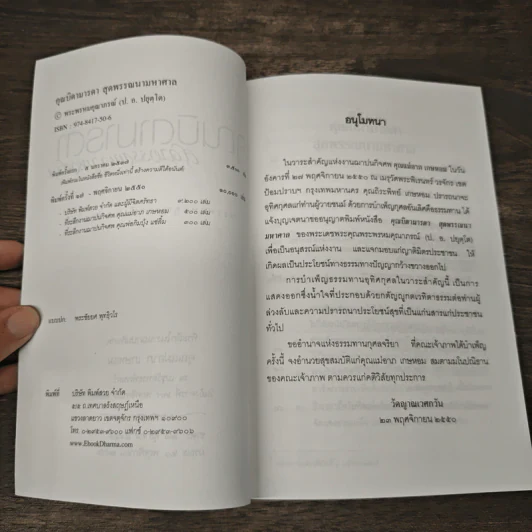 คุณบิดามารดา สุดพรรณนามหาศาล
© พระพรหมคุณาภรณ์ (ป. อ. ปยุตฺโต)
ISBN : 974-8417-50-6
พิมพ์ครั้งที่ ๑๗ - พฤศจิกายน ๒๕๕๐
- บริษัท พิมพ์สวย จำกัด และผู้มีจิตศรัทธา ๙,๒๐๐ เล่ม
- ที่ระลึกงานฌาปนกิจศพ คุณแม่อาภ เกษหอม ๕๐๐ เล่ม
๓๐๐ เล่ม
แบบปก พระชัยยศ พุทฺธิวโร
พิมพ์ที่ บริษัท พิมพ์สวย จำกัด
ถ.เทศบาลรังสฤษฎ์เหนือ
แขวงลาดยาว เขตจตุจักร กรุงเทพฯ ๑๐๙๐๐
โทร. ๐๒๙๕๓-๙๖๐๐ แฟกซ์ ๐๒๙๕๓-๙๖๐๖
www.EbookDharma.com
อนุโมทนา
ในวาระสำคัญแห่งงานฌาปนกิจศพ คุณแม่อาภ เกษหอม ในวัน
อังคารที่ ๒๗ พฤศจิกายน ๒๕๕๐ ณ เมรุวัดพระพิเรนทร์ วรจักร เขต
ป้อมปราบฯ กรุงเทพมหานคร คุณถิระพิทย์ เกษหอม ปรารถนาจะ
อุทิศกุศลแก่ท่านผู้วายชนม์ ด้วยการบำเพ็ญกุศลอันเลิศคือธรรมทาน ได้
แจ้งบุญเจตนาขออนุญาตพิมพ์หนังสือ คุณบิดามารดา สุดพรรณนา
มหาศาล ของพระเดชพระคุณพระพรหมคุณาภรณ์ (ป. อ. ปยุตฺโต)
เพื่อเป็นอนุสรณ์แห่งงาน และแจกมอบแก่ญาติมิตรประชาชน ให้
เกิดผลเป็นประโยชน์ทางธรรมทางปัญญากว้างขวางออกไป
การบำเพ็ญธรรมทานอุทิศกุศลในวาระสำคัญนี้ เป็นการ
แสดงออกซึ่งน้ำใจที่ประกอบด้วยกตัญญูกตเวทิตาธรรมต่อท่านผู้
ล่วงลับและความปรารถนาประโยชน์สุขที่เป็นแก่นสารแก่ประชาชน
ทั่วไป
ขออำนาจแห่งธรรมทานกุศลจริยา ที่คณะเจ้าภาพได้บำเพ็ญ
ครั้งนี้ จงอำนวยสุขสมบัติแก่คุณแม่อาภ เกษหอม สมตามมโนปณิธาน
ของคณะเจ้าภาพ ตามควรแก่คติวิสัยทุกประการ
วัดญาณเวศกวัน
๒๓ พฤศจิกายน ๒๕๕๐